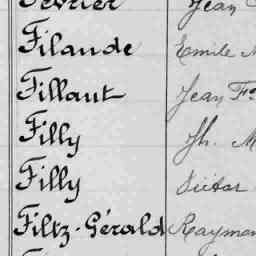 Février Jean
Filande Emile
Fillaut Jean Fs
Filly Jh. M
Filly Victor
Filtz-Gérald Raymon